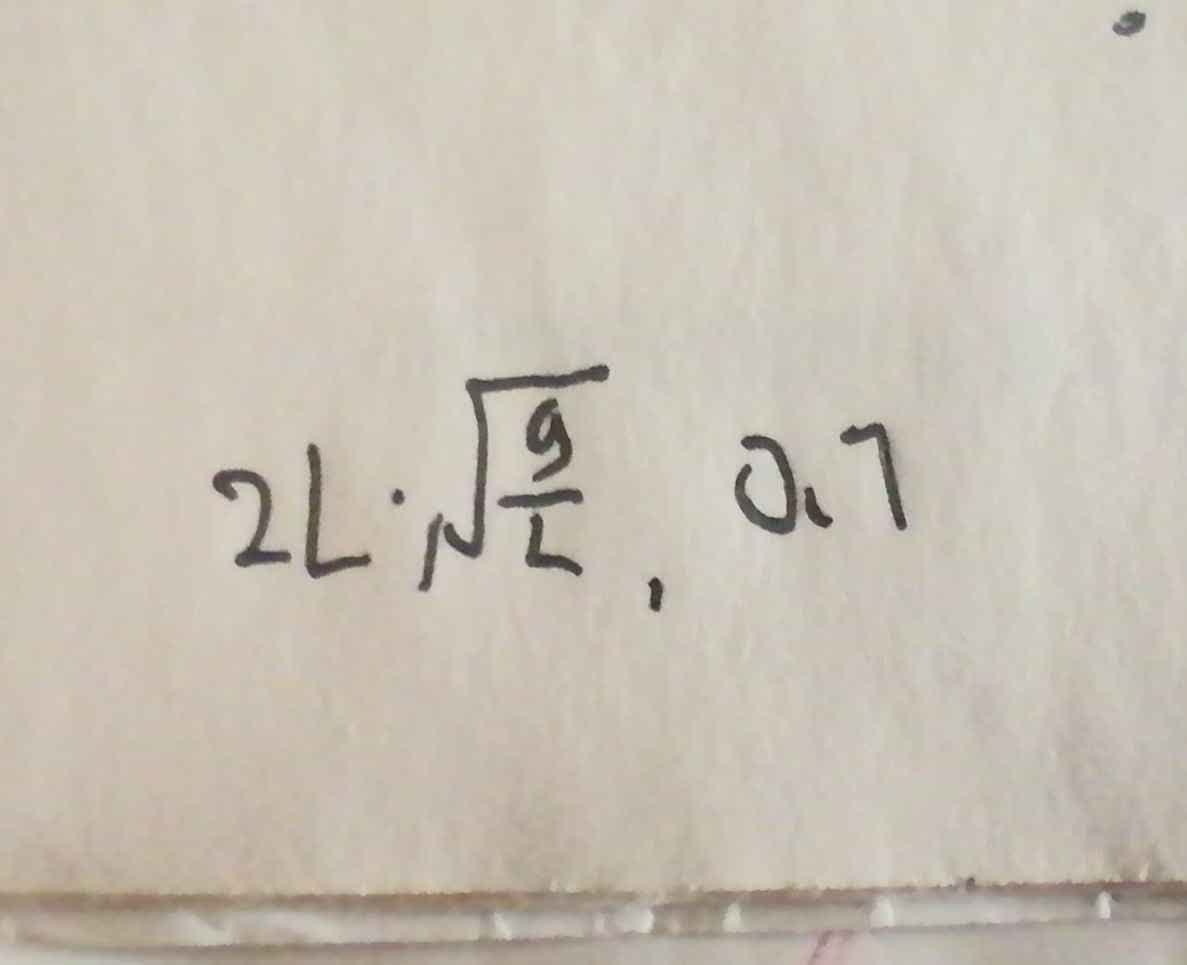 2L·√(g/L), 0.7